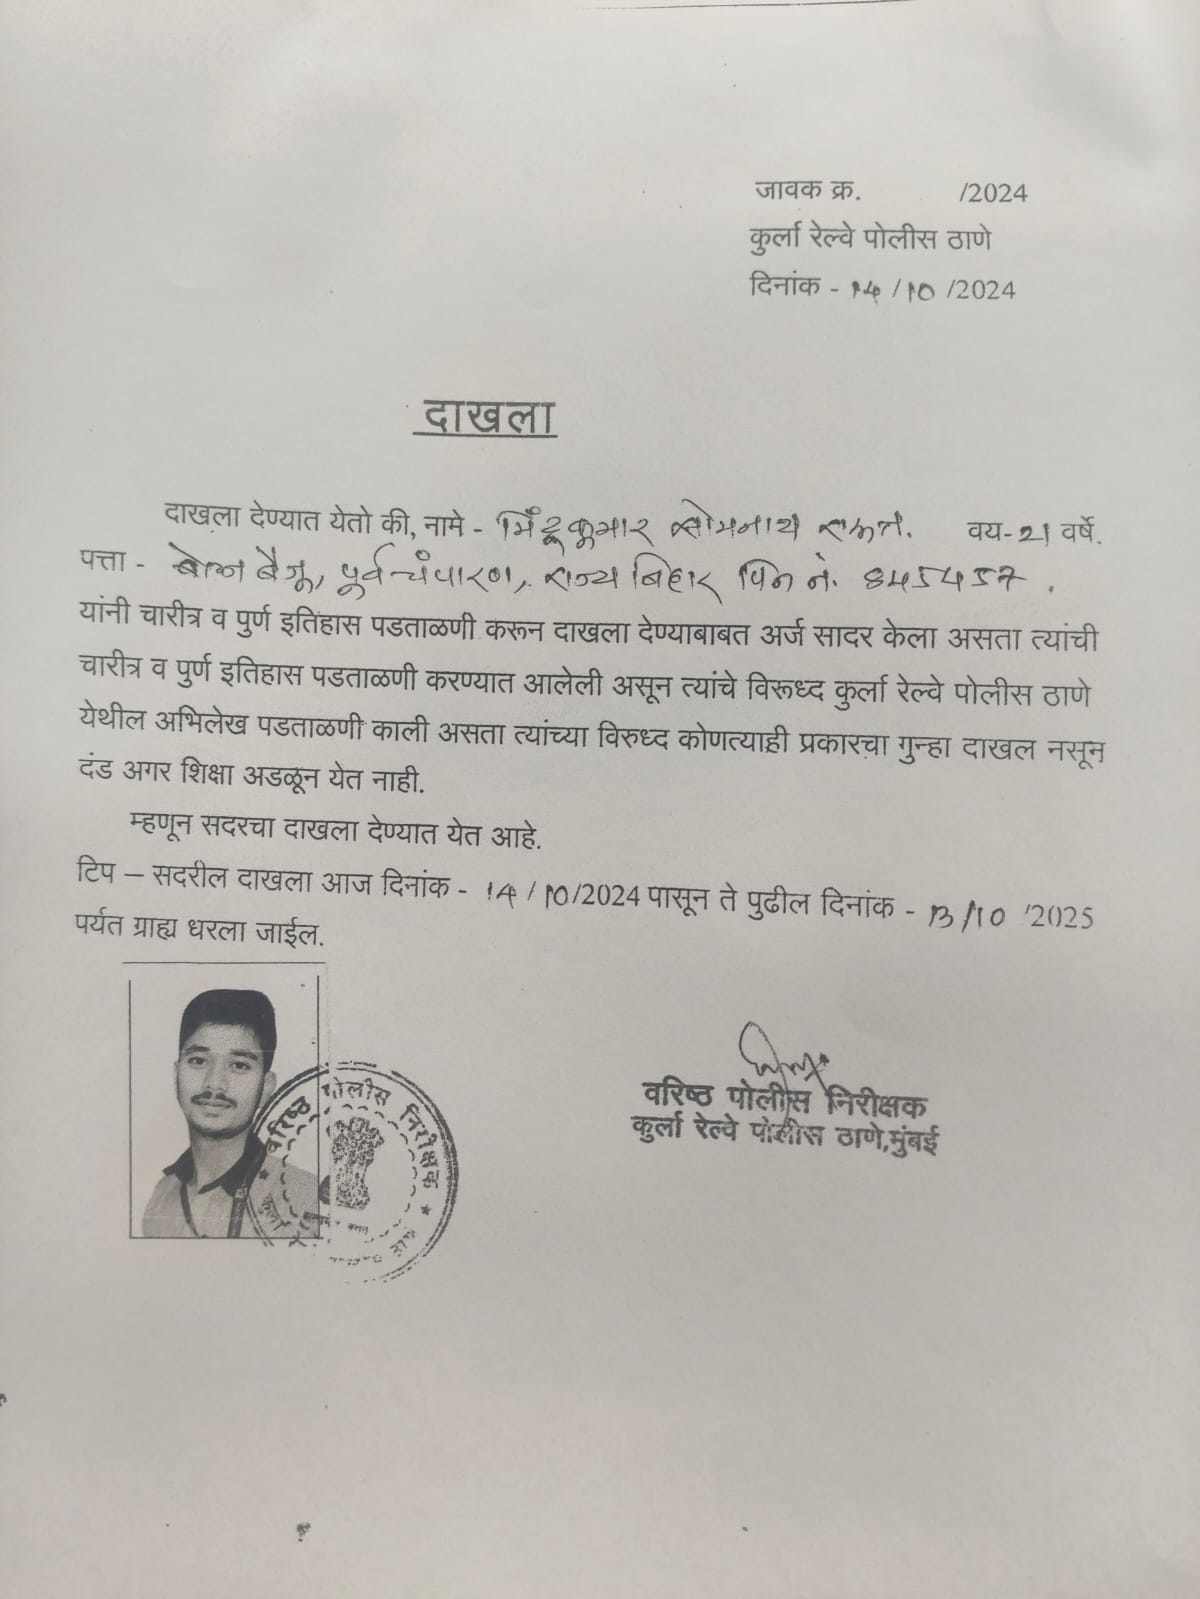 जावक क्र. /2024
कुर्ला रेल्वे पोलीस ठाणे
दिनांक - 14 / 10 /2024
दाखला
दाखला देण्यात येतो की, नामे - मिंटूकुमार सोमनाथ वय- 21 वर्षे.
पत्ता - बैजू, पूर्व चंपारण, राज्य बिहार पिन नं. 845457 .
यांनी चारीत्र व पुर्ण इतिहास पडताळणी करून दाखला देण्याबाबत अर्ज सादर केला असता त्यांची
चारीत्र व पुर्ण इतिहास पडताळणी करण्यात आलेली असून त्यांचे विरूध्द कुर्ला रेल्वे पोलीस ठाणे
येथील अभिलेख पडताळणी काली असता त्यांच्या विरुध्द कोणत्याही प्रकारचा गुन्हा दाखल नसून
दंड अगर शिक्षा अडळून येत नाही.
म्हणून सदरचा दाखला देण्यात येत आहे.
टिप – सदरील दाखला आज दिनांक - 14 / 10/2024 पासून ते पुढील दिनांक - 13/10 /2025
पर्यत ग्राह्य धरला जाईल.
वरिष्ठ पोलीस निरीक्षक
कुर्ला
वरिष्ठ पोलीस निरीक्षक
कुर्ला रेल्वे पोलीस ठाणे,मुंबई